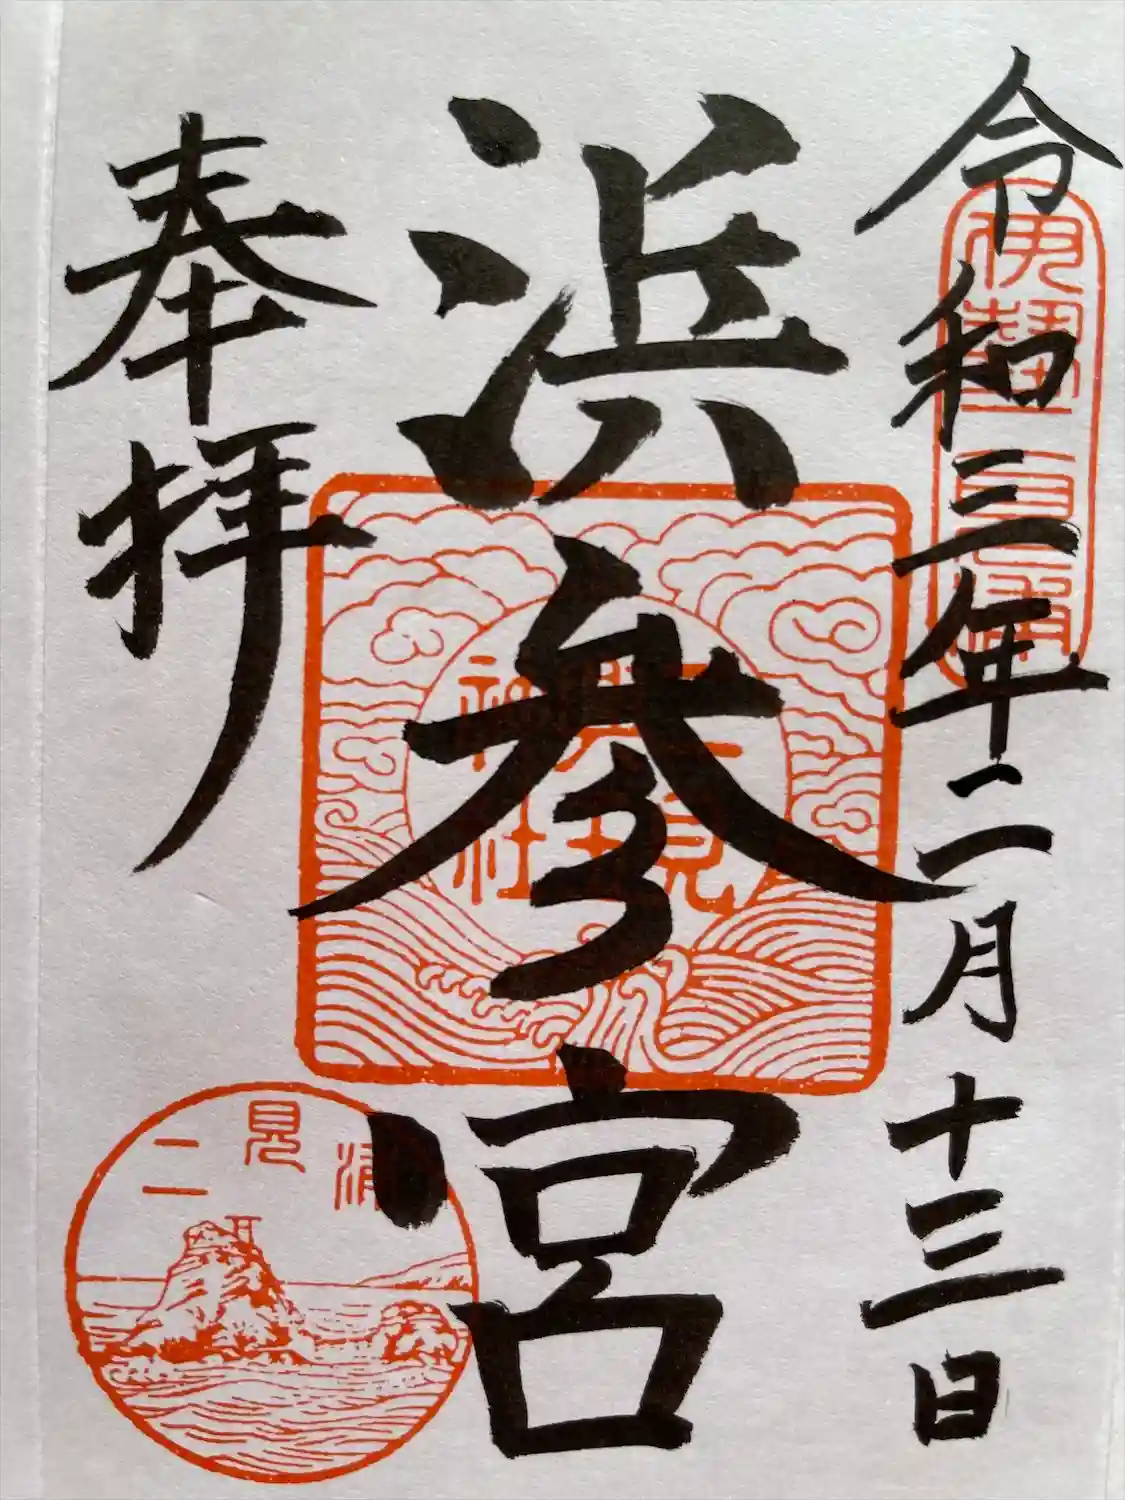 令和三年二月十三日
伊勢二見浦
浜参宮
二見興玉神社
奉拝
二見浦